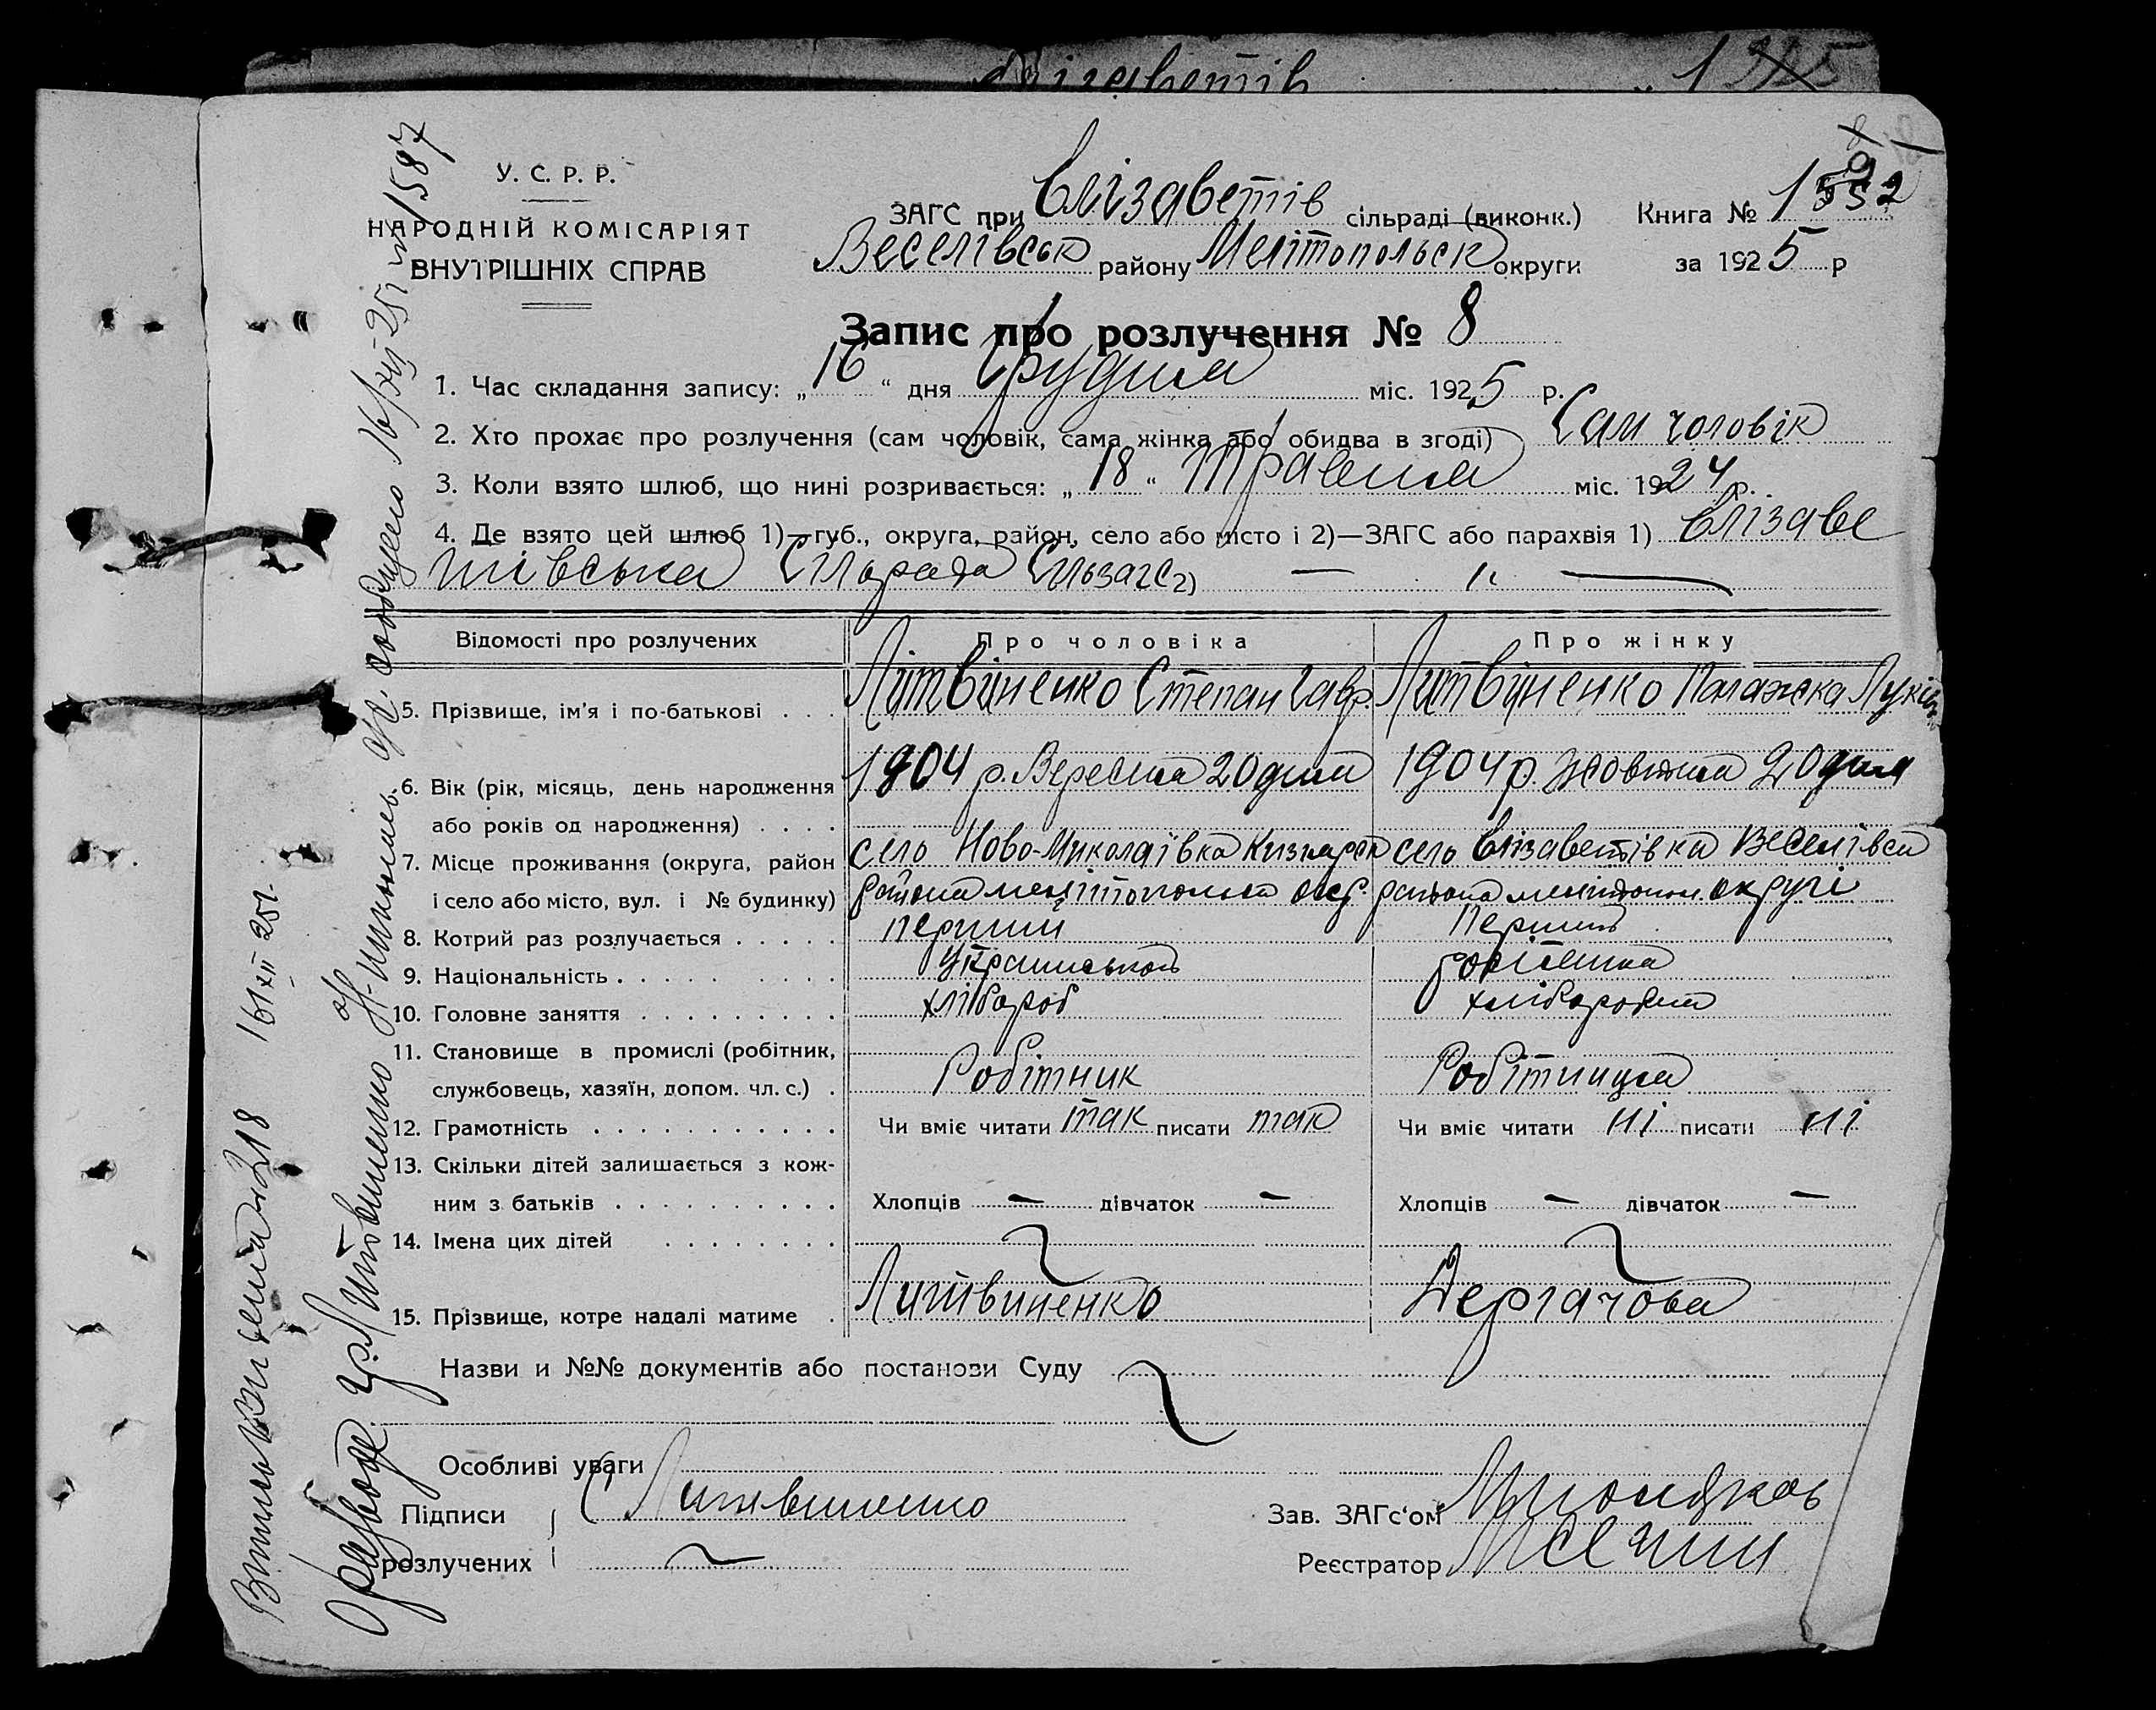 У. С. Р. Р.
НАРОДНІЙ КОМІСАРІЯТ
ВНУТРІШНІХ СПРАВ
ЗАГС при Єлізаветів сільраді (виконк.) Книга №
Веселівськ району Мелітопольськ округи за 1925 р
Запис про розлучення № 8
1. Час складання запису: „16“ дня Грудня міс. 1925 р.
2. Хто прохає про розлучення (сам чоловік, сама жінка або обидва в згоді) Сам чоловік
3. Коли взято шлюб, що нині розривається: „18“ Травня міс. 1924 р.
4. Де взято цей шлюб 1)—губ., округа, район, село або місто і 2)—ЗАГС або парахвія 1) Єлізаве
тівська Сільзагс 2) — „ —
Відомості про розлучених Про чоловіка Про жінку
5. Прізвище, ім'я і по-батькові . . . Литвиненко Степан Гавр. Литвиненко Палажка
6. Вік (рік, місяць, день народження 1904 р. Вересня 20 дня 1904 р. Жовтня 20 дня
або років од народження) . . . .
7. Місце проживання (округа, район село Ново-Миколаївка село Єлізаветівка Веселівск
і село або місто, вул. і № будинку) района округі
8. Котрий раз розлучається . . . . . перший Перший
9. Національність . . . .
10. Головне заняття . . . . . . . . . хлібороб
11. Становище в промислі (робітник,
службовець, хазяїн, допом. чл. с.) . Робітник Робітниця
12. Грамотність . . . . . . . . . . . Чи вміє читати так писати так Чи вміє читати ні писати ні
13. Скільки дітей залишається з кож-
ним з батьків . . . . . . . . . . Хлопців — дівчаток — Хлопців — дівчаток —
14. Імена цих дітей . . . . . . . .
15. Прізвище, котре надалі матиме . Литвиненко Дергачова
Назви и №№ документів або постанови Суду
Особливі уваги
Підписи Литвиненко Зав. ЗАГс‘ом
розлучених Реєстратор
О разводе гр. Литвиненко сообщено 16/XII 25 г. 1587
218 16/XII 25 г.